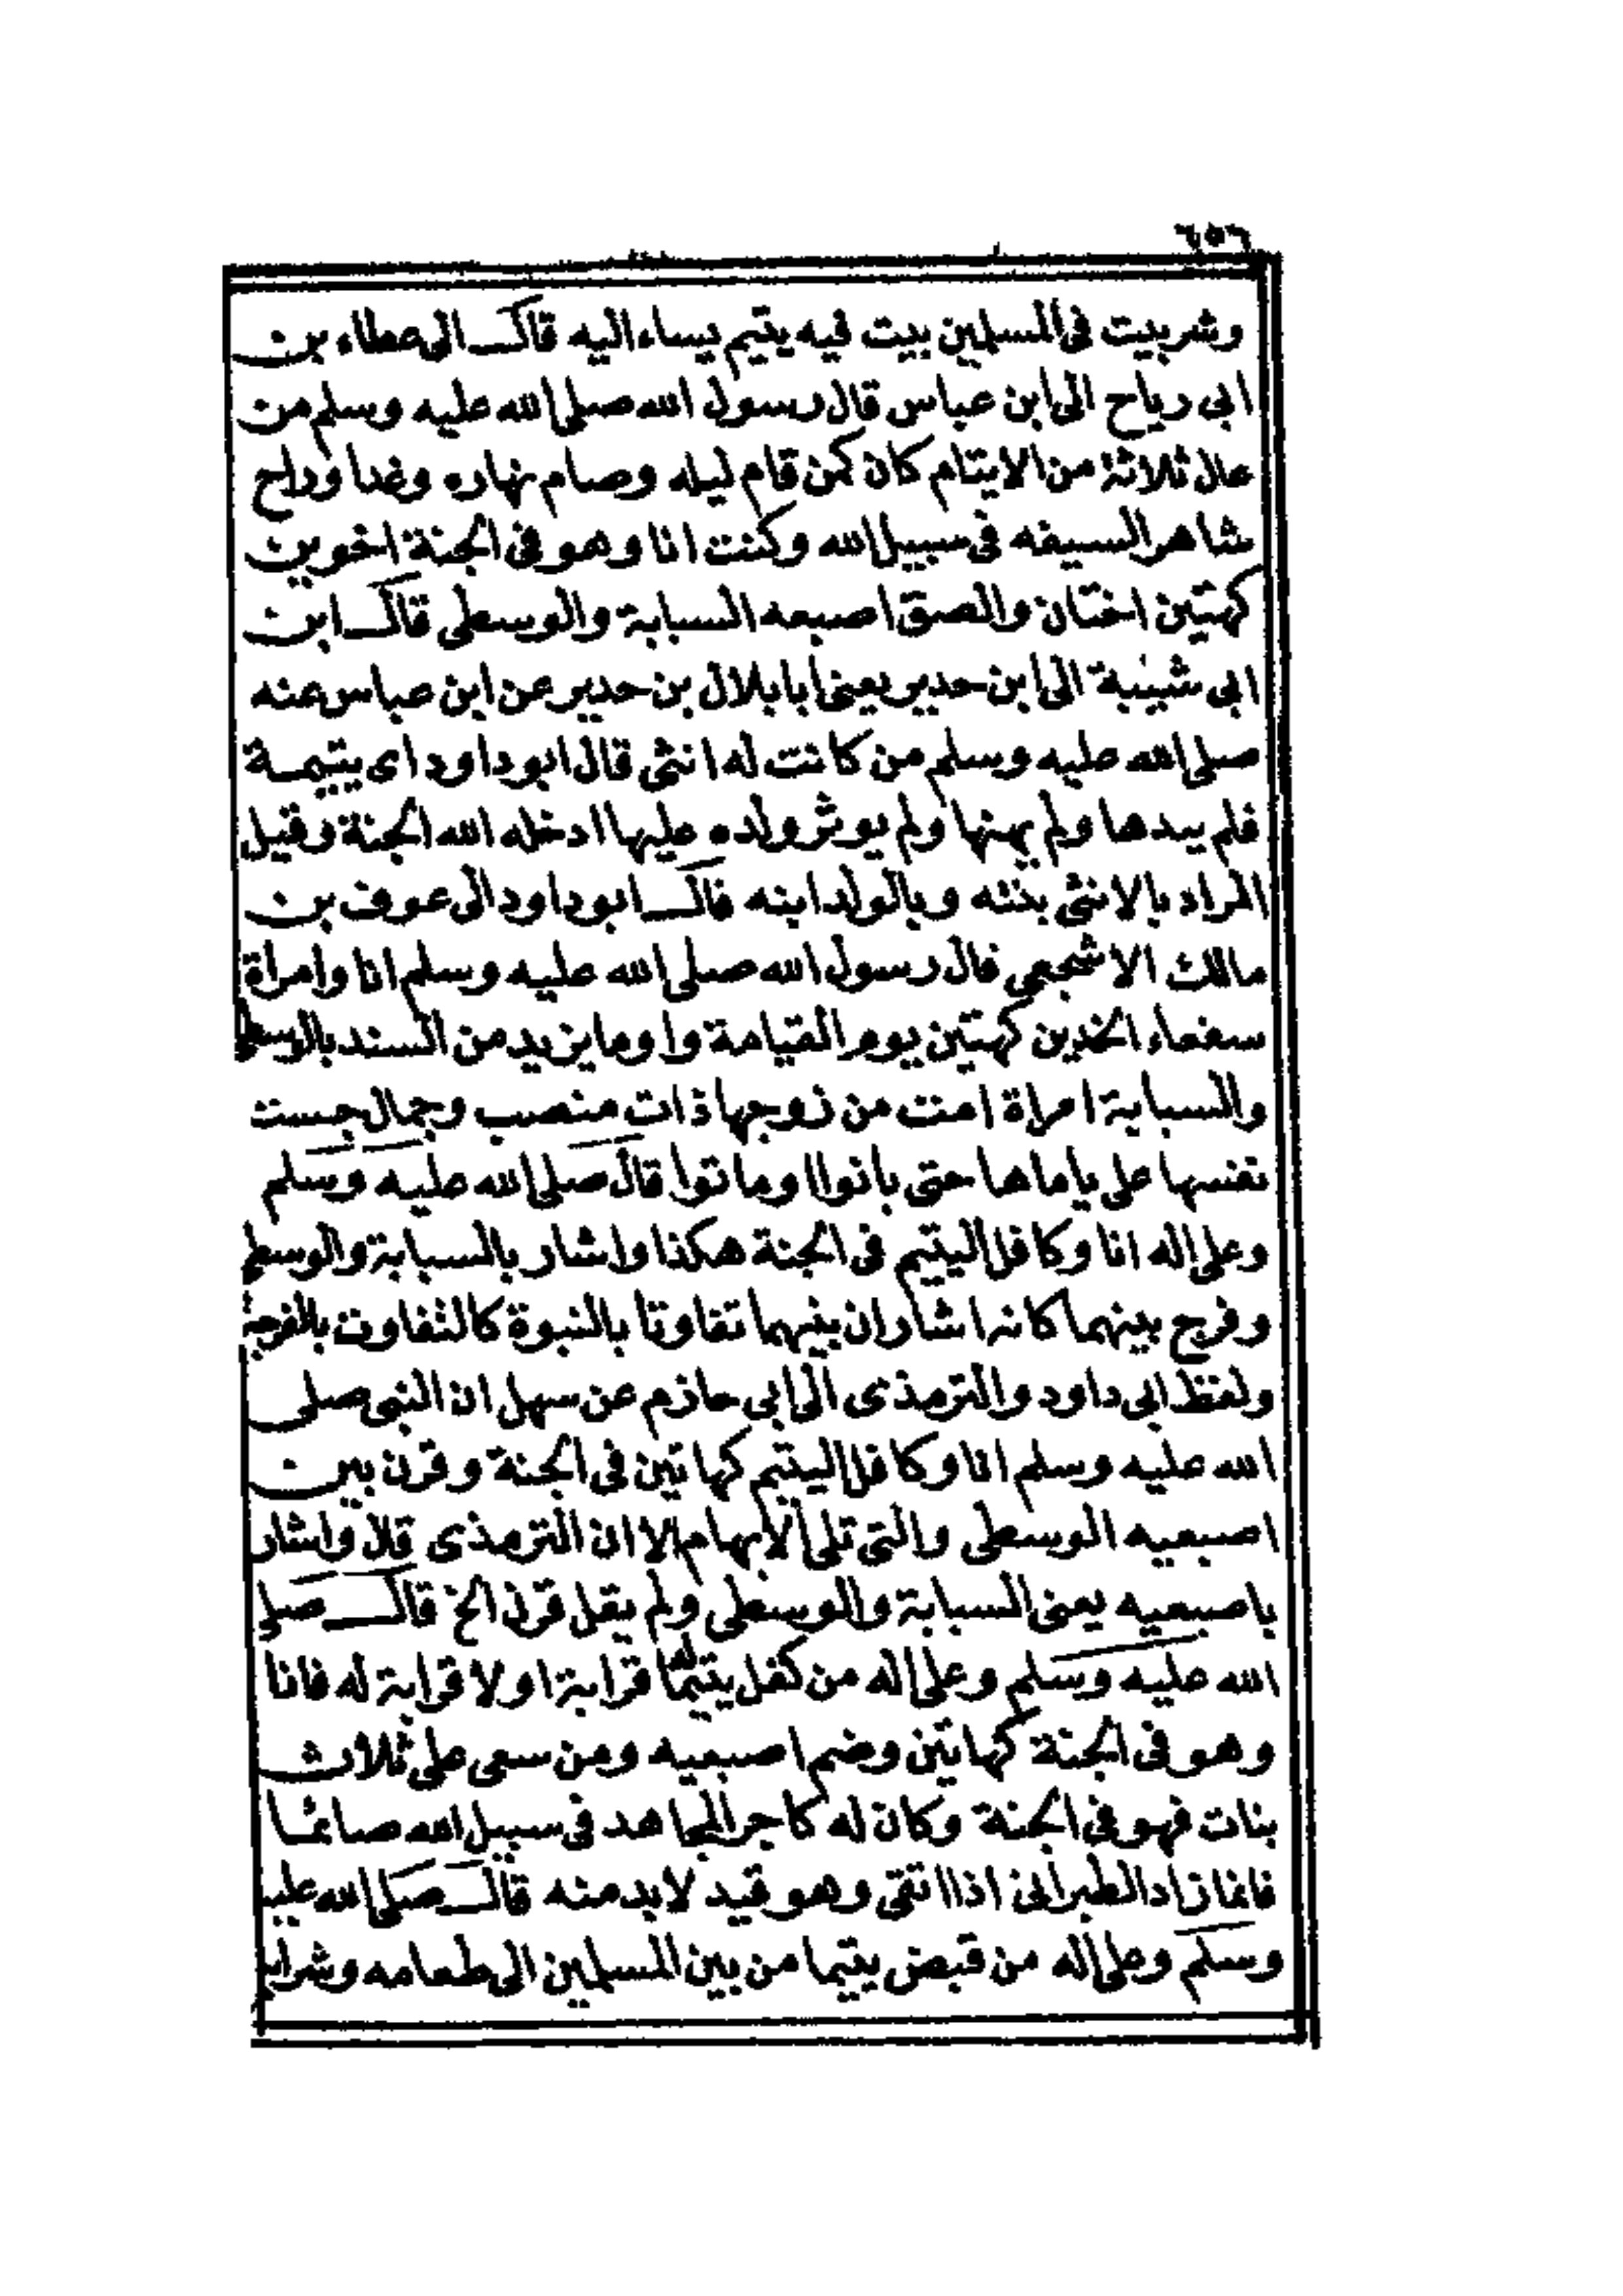 ٦٥٦
وشر بيت فى المسلمين بيت فيه يتيم يساء اليه قال الى عطاء بن
ابى رباح الى ابن عباس قال رسول الله صلى الله عليه وسلم من
عال ثلاثة من الايتام كان كمن قام ليله وصام نهاره وغدا وراح
شاهر السيفه فى سبيل الله وكنت انا وهو فى الجنة اخوين
كهتين اختان والصق اصبعه السبابة والوسطى قال ابن
ابى شيبة الى ابن حدير يعنى ابا بلال بن حدير عن ابن عباس عنه
صلى الله عليه وسلم من كانت له انثى قال ابو داود اى يتيمة
فلم يبدها ولم يهنها ولم يوثر ولده عليها ادخله الله الجنة وقيل
المراد بالانثى بنته وبالولد ابنه قال ابو داود الى عوف بن
مالك الاشجعى قال رسول الله صلى الله عليه وسلم انا وامراة
سفعاء الخدين كهتين يوم القيامة واوما يزيد من السند بالوسطى
والسبابة امراة امت من زوجها ذات منصب وجمال حبست
نفسها على ياماها حتى بانوا اوماتوا قال صلى الله عليه وسلم
وعلى اله انا وكافل اليتيم فى الجنة هكذا واشار بالسبابة والوسطى
وفرج بينهما كانه اشار ان بينهما تفاوتا بالنبوة كالتفاوت بالفرجة
ولفظ ابى داود والترمذى الى ابى حازم عن سهل ان النبى صلى
الله عليه وسلم انا وكافل اليتيم كهاتين فى الجنة وقرن بين
اصبعيه الوسطى والتى تلى الابهام الا ان الترمذى قال واشار
باصبعيه يعنى السبابة والوسطى ولم يقل قرن الخ قال صلى
الله عليه وسلم وعلى اله من كفل يتيما قرابة او لا قرابة له فانا
وهو فى الجنة كهاتين وضم اصبعيه ومن سعى على ثلاث
بنات فهو فى الجنة وكان له كاجر المجاهد فى سبيل الله صائما
قائما زاد الطبرانى اذا اتقى وهو قيد لابد منه قال صلى الله عليه
وسلم وعلى اله من قبض يتيما من بين المسلمين الى طعامه وشرابه